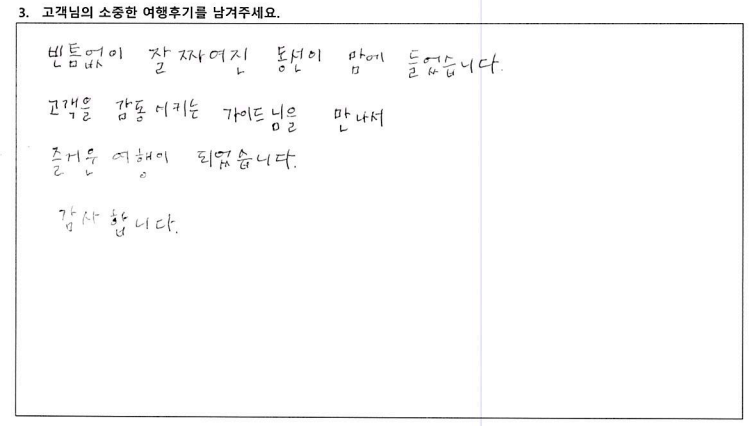 3. 고객님의 소중한 여행후기를 남겨주세요.
빈틈없이 잘 짜여진 동선이 맘에 들었습니다.
고객을 감동시키는 가이드님을 만나서
즐거운 여행이 되었습니다.
감사합니다.